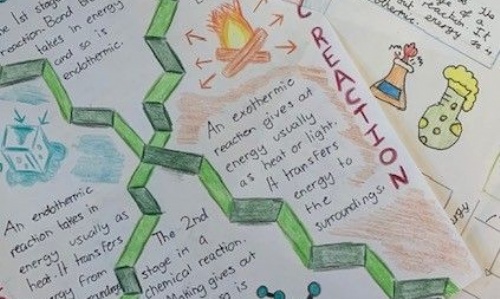 he 1st stage
reaction. Bond
takes in energy
and so is
endothermic.
REACTION
An exothermic
reaction gives out
energy usually
as heat or light.
It transfers
energy to
the
surroundings.
An endothermic
reaction takes in
energy usually as
heat. It transfers
energy from
The 2nd
stage in a
chemical reaction.
Making gives out
so is
reaction
out energy